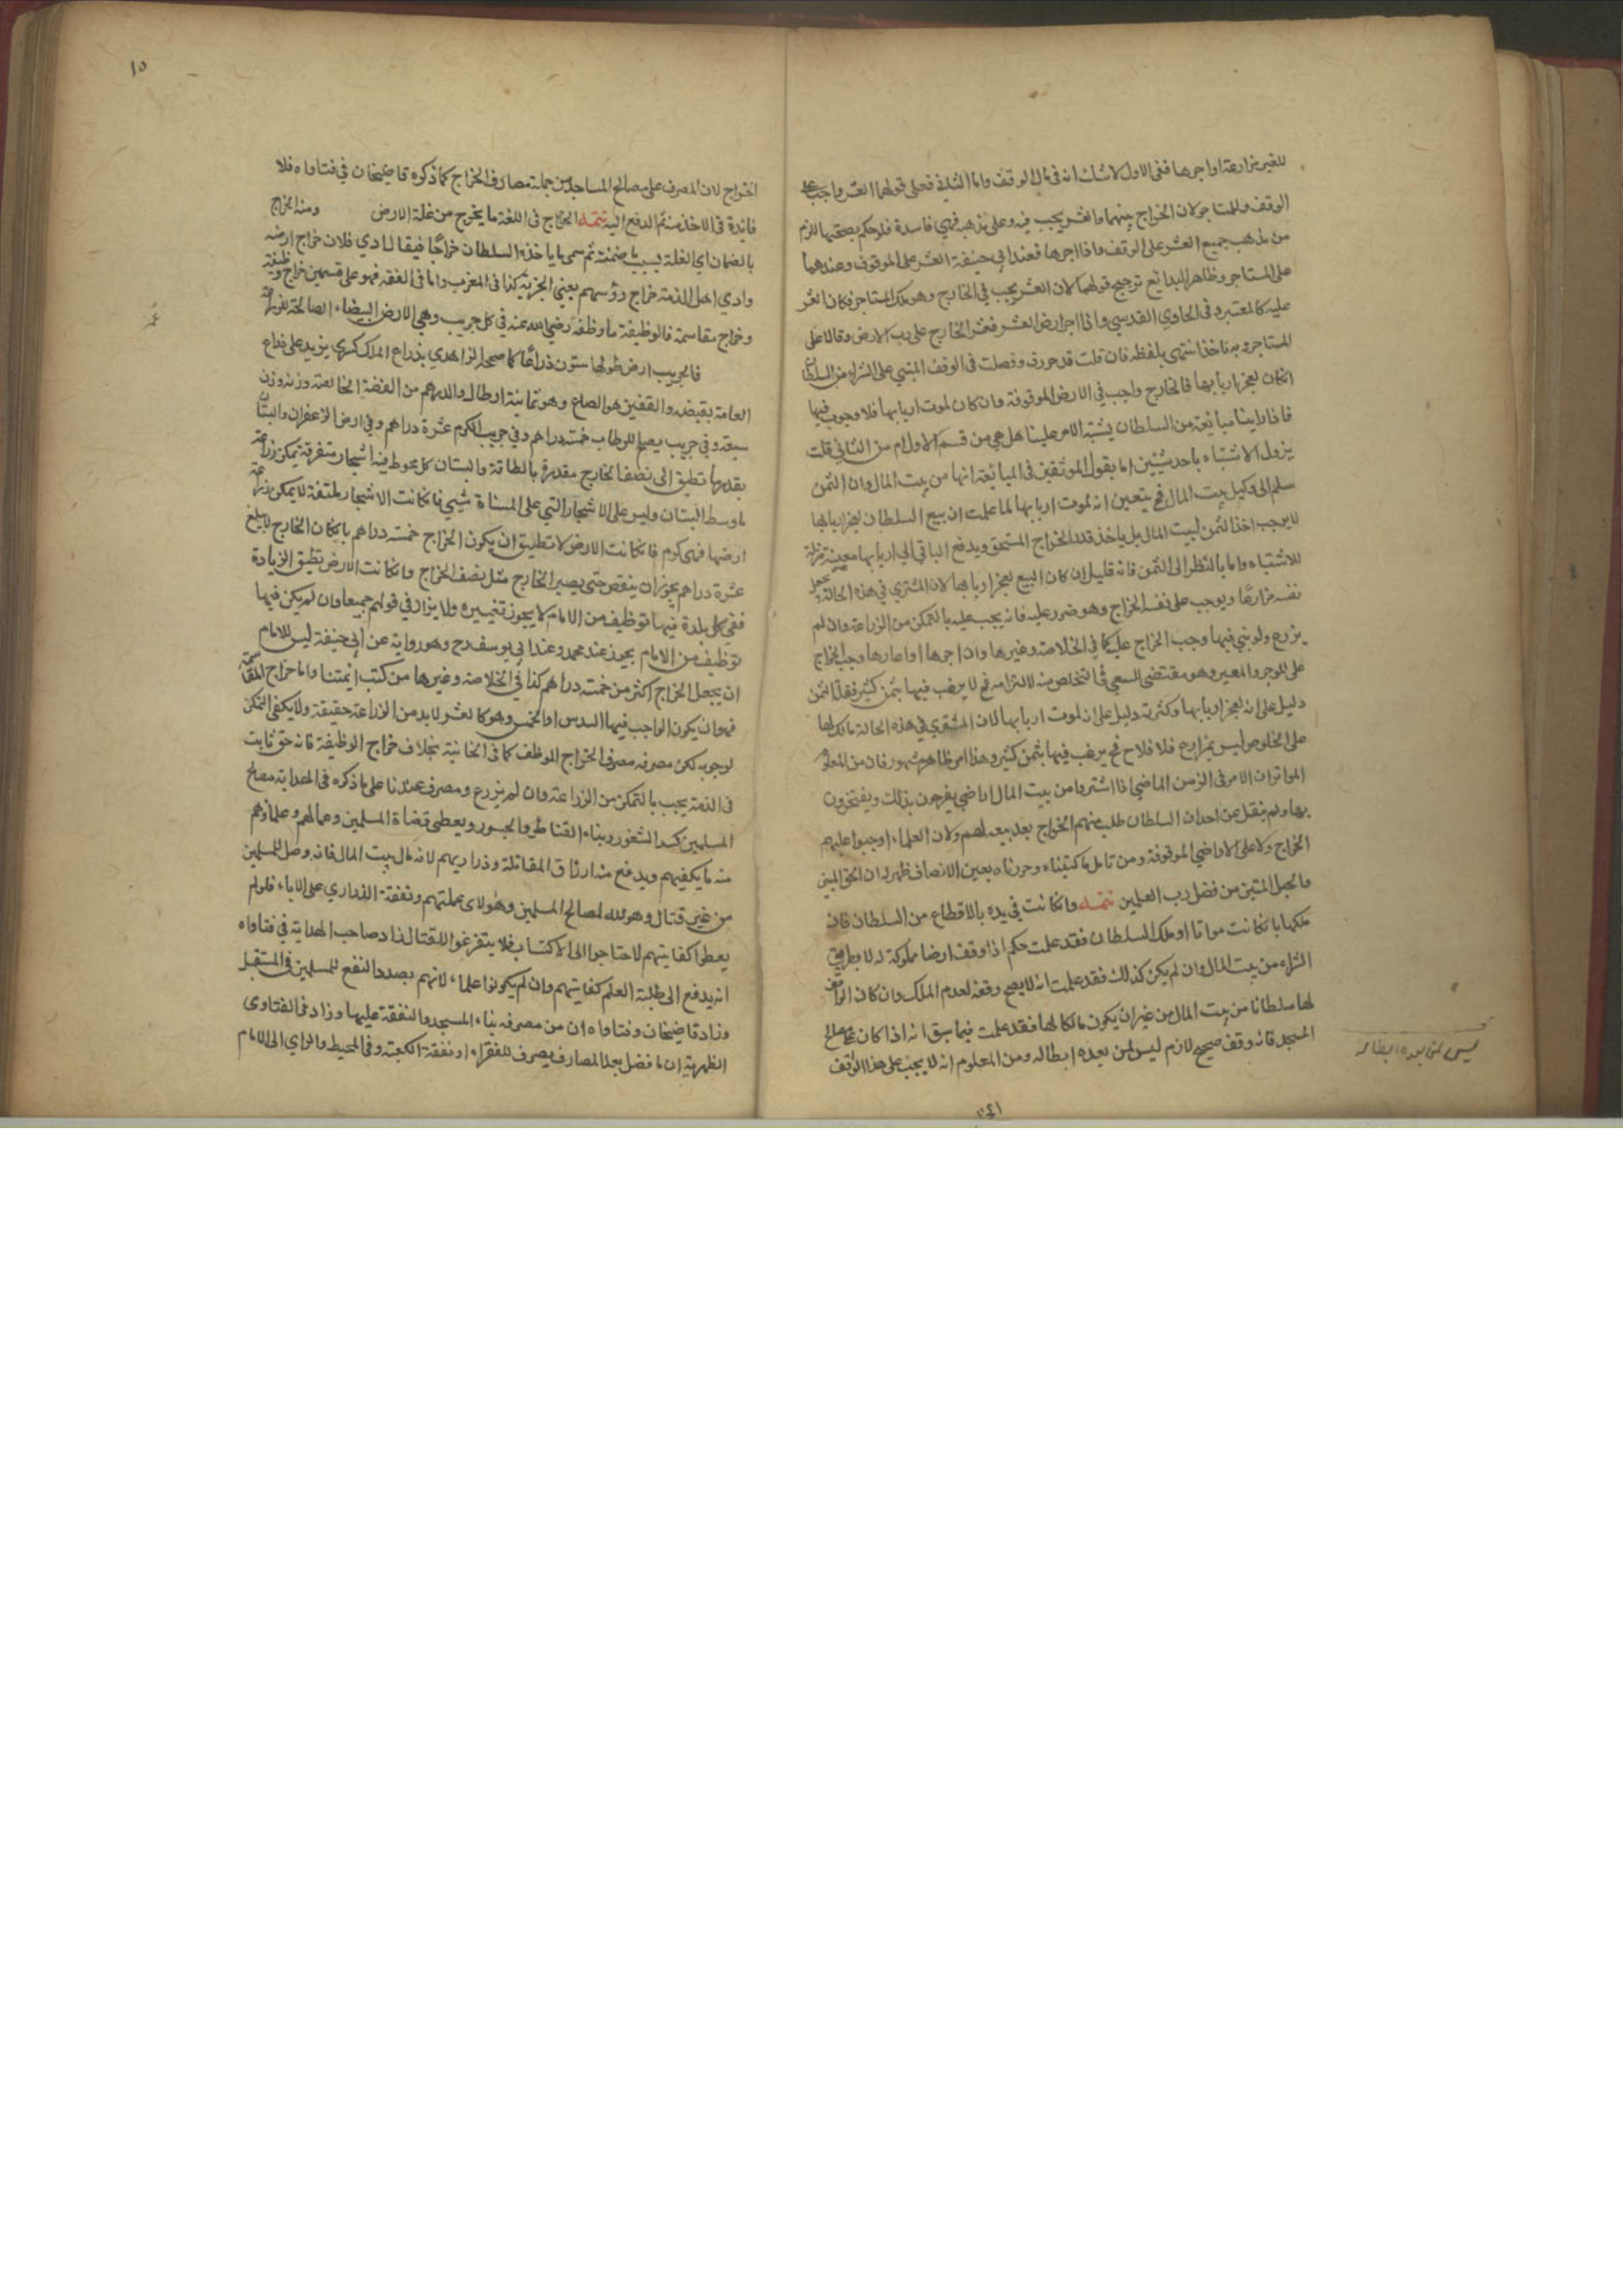 للغير مزارعة او اجرها ففى الاول لا شك انه فى مال الوقف واما الثانى فعلى قولهما العشر واجب على
الوقف والمستاجر لان الخراج بينهما والعشر يجب فيه وعلى مذهبه فهي فاسدة فلو حكم بصحتها للزم
من مذهب جميع العشر على الوقف واذا اجرها فعند ابي حنيفة العشر على الموقوف وعندهما
على المستاجر وظاهر البدائع ترجيح قولهما لان العشر يجب في الخارج وهو ملك المستاجر فكان العشر
عليه كالمعتبر وفى الحاوي القدسي واذا اجر ارض العشر فعشر الخارج على رب الارض وقالا على
المستاجر وبه ناخذ انتهى بلفظه فان قلت قد حررت وفصلت فى الوقف المبني على الشراء من السلطان
ان كان لعجز اربابها فالخارج واجب في الارض الموقوفة وان كان لموت اربابها فلا وجوب فيها
فاذا راينا مبايعة من السلطان يشتبه الامر علينا هل هي من قسم الاول ام من الثاني قلت
يزول الاشتباه باحد شيئين اما بقول الموثقين فى المبايعة انها من بيت المال وان الثمن
سلم الى وكيل بيت المال فح يتعين انه لموت اربابها لما علمت ان بيع السلطان لعجز اربابها
لا يوجب اخذ الثمن لبيت المال بل ياخذ قدر الخراج المستحق ويدفع الباقي الى اربابها معينة مزيلة
للاشتباه واما بالنظر الى الثمن فانه قليل ان كان البيع لعجز اربابها لان المشتري في هذه الحالة يجعل
نفسه مزارعا ويوجب على نفسه الخراج وهو ضرر عليه فانه يجب عليه بالتمكن من الزراعة وان لم
يزرع ولو بني فيها وجب الخراج عليه كما في الخلاصة وغيرها وان اجرها او اعارها وجب الخراج
على الموجر والمعير وهو مقتضى السعي فى التخلص منه لا التزامه فح لا يرغب فيها بثمن كثير فقلة الثمن
دليل على انه لعجز اربابها وكثرته دليل على انه لموت اربابها لان المشتري في هذه الحالة مالك لها
على الخلوص ليس بمزارع فلا فلاح فح يرغب فيها بثمن كثير وهذا امر ظاهر مشهور فان من المعلوم
المتواتر ان الامر فى الزمن الماضي اذا اشتروا من بيت المال اراضي يفرحون بذلك ويفتخرون
بها ولم ينقل عن احد ان السلطان طلب منهم الخراج بعد بيعه لهم ولان العلماء اوجبوا عليهم
الخراج ولا على الاراضي الموقوفة ومن تامل ما كتبناه وحررناه بعين الانصاف ظهر له ان الحق المبين
والحبل المتين من فضل رب العلمين تتمه وان كانت في يده بالاقطاع من السلطان فان
ملكها بان كانت مواتا او ملك السلطان فقد علمت حكم اذا وقف ارضا مملوكة له لا بطريق
الشراء من بيت المال وان لم يكن كذلك فقد علمت انه لا يصح وقفه لعدم الملك وان كان الواقف
لها سلطانا من بيت المال من غير ان يكون مالكا لها فقد علمت فيما سبق انه اذا كان على مصالح
المسجد فانه وقف صحيح لازم ليس لمن بعده ابطاله ومن المعلوم انه لا يجب على هذا الوقف
ليس لمن بعده ابطاله
١٥
الخراج لان المصرف على مصالح المساجد من جملة مصارف الخراج كما ذكره قاضيخان في فتاواه فلا
فائدة فى الاخذ منه ثم الدفع اليه تتمه الخراج فى اللغة ما يخرج من غلة الارض ومنه الخراج
بالضمان اي الغلة بسبب ما ضمنته ثم سمى ما ياخذه السلطان خراجا فيقال ادي فلان خراج ارضه
وادي اهل الذمة خراج رؤسهم يعني الجزية كذا فى المغرب واما فى الفقه فهو على قسمين خراج وظيفة
وخراج مقاسمة فالوظيفة ما وظفه رضي الله عنه في كل جريب وهي الارض البيضاء الصالحة للزراعة
عمر
فالجريب ارض طولها ستون ذراعا كما صححه الزاهدي بذراع الملك كسرى يزيد على ذراع
العامة بقبضة والقفيز هو الصاع وهو ثمانية ارطال والدرهم من الفضة الخالصة وزنه وزن
سبعة وفي جريب يصلح للرطاب خمسة دراهم وفي جريب الكرم عشرة دراهم وفي ارض الزعفران والبستان
بقدر ما تطيق الى نصف الخارج مقدرة بالطاقة والبستان كل يحوط فيه اشجار متفرقة يمكن زراعة
ما وسط البستان وليس على الاشجار التي على المسناة شيء فان كانت الاشجار ملتفة لا يمكن زراعة
ارضها فهى كرم فان كانت الارض لا تطيق ان يكون الخراج خمسة دراهم بان كان الخارج لا يبلغ
عشرة دراهم يجوز ان ينقص حتى يصير الخارج مثل نصف الخراج وان كانت الارض تطيق الزيادة
ففي كل بلدة فيها توظيف من الامام لا يجوز تغييره ولا يزاد في قولهم جميعا وان لم يكن فيها
توظيف من الامام يجوز عند محمد وعند ابي يوسف رح وهو رواية عن ابي حنيفة ليس للامام
ان يجعل الخراج اكثر من خمسة دراهم كذا في الخلاصة وغيرها من كتب ايمتنا واما خراج المقاسمة
فهو ان يكون الواجب فيها السدس او الخمس وهو كالعشر لا بد من الزراعة حقيقة ولا يكفى التمكن
لوجوبه لكن مصرفه مصرف الخراج الموظف كما فى الخانية بخلاف خراج الوظيفة فانه حق ثابت
فى الذمة يجب بالتمكن من الزراعة وان لم يزرع ومصرفه عندنا على ما ذكره فى الهداية مصالح
المسلمين كسد الثغور وبناء القناطر والجسور ويعطى قضاة المسلمين وعمالهم وعلماؤهم
منه ما يكفيهم ويدفع منه ارزاق المقاتلة وذراريهم لانه مال بيت المال فانه وصل للمسلمين
من غير قتال وهو معد لمصالح المسلمين وهؤلاء عملتهم ونفقة الذراري على الاباء فلو لم
يعطوا كفايتهم لاحتاجوا الى الاكتساب فلا يتفرغوا للقتال زاد صاحب الهداية في فتاواه
انه يدفع الى طلبة العلم كفايتهم وان لم يكونوا علماء لانهم بصدد النفع للمسلمين فى المستقبل
وزاد قاضيخان وفتاواه ان من مصرفه بناء المسجد والنفقة عليها وزاد فى الفتاوى
الظهرية ان ما فضل بعد المصارف يصرف للفقراء او نفقة الكعبة وفى المحيط والراي الى الامام